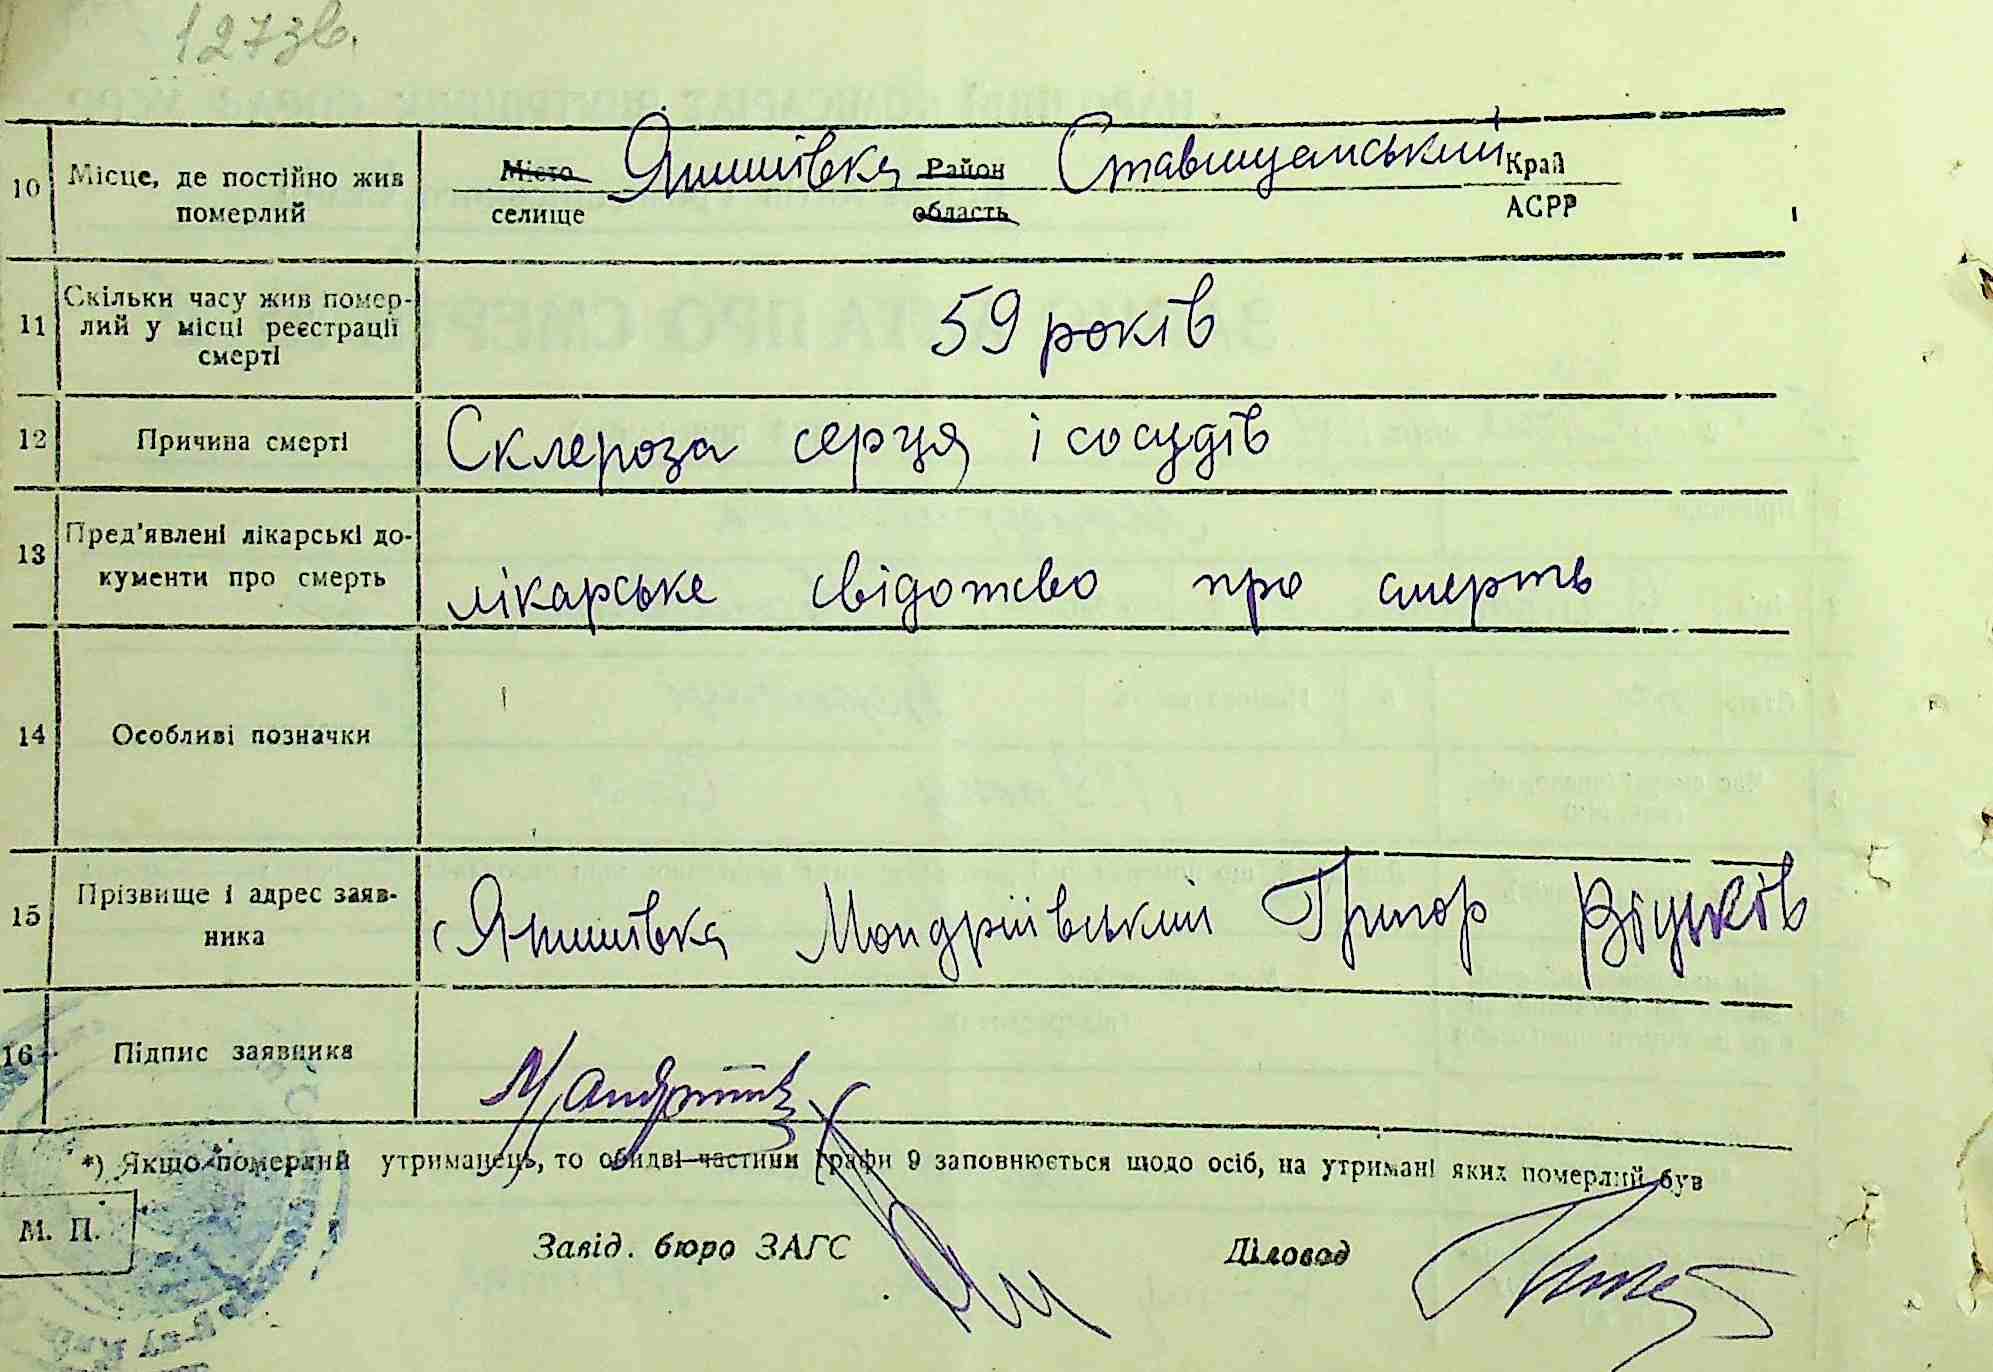 127зв.
10 Місце, де постійно жив померлий
Місто селище Янишівка Район область Ставищанський Край АСРР
11 Скільки часу жив померлий у місці реєстрації смерті
59 років
12 Причина смерті
Склероза серця і сосудів
13 Пред'явлені лікарські документи про смерть
лікарське свідотство про смерть
14 Особливі позначки
15 Прізвище і адрес заявника
с Янишівка Мондріївський Григор
16 Підпис заявника
*) Якщо померлий утриманець, то обидві частини графи 9 заповнюється щодо осіб, на утримані яких померлий був
М. П.
Завід. бюро ЗАГС
Діловод